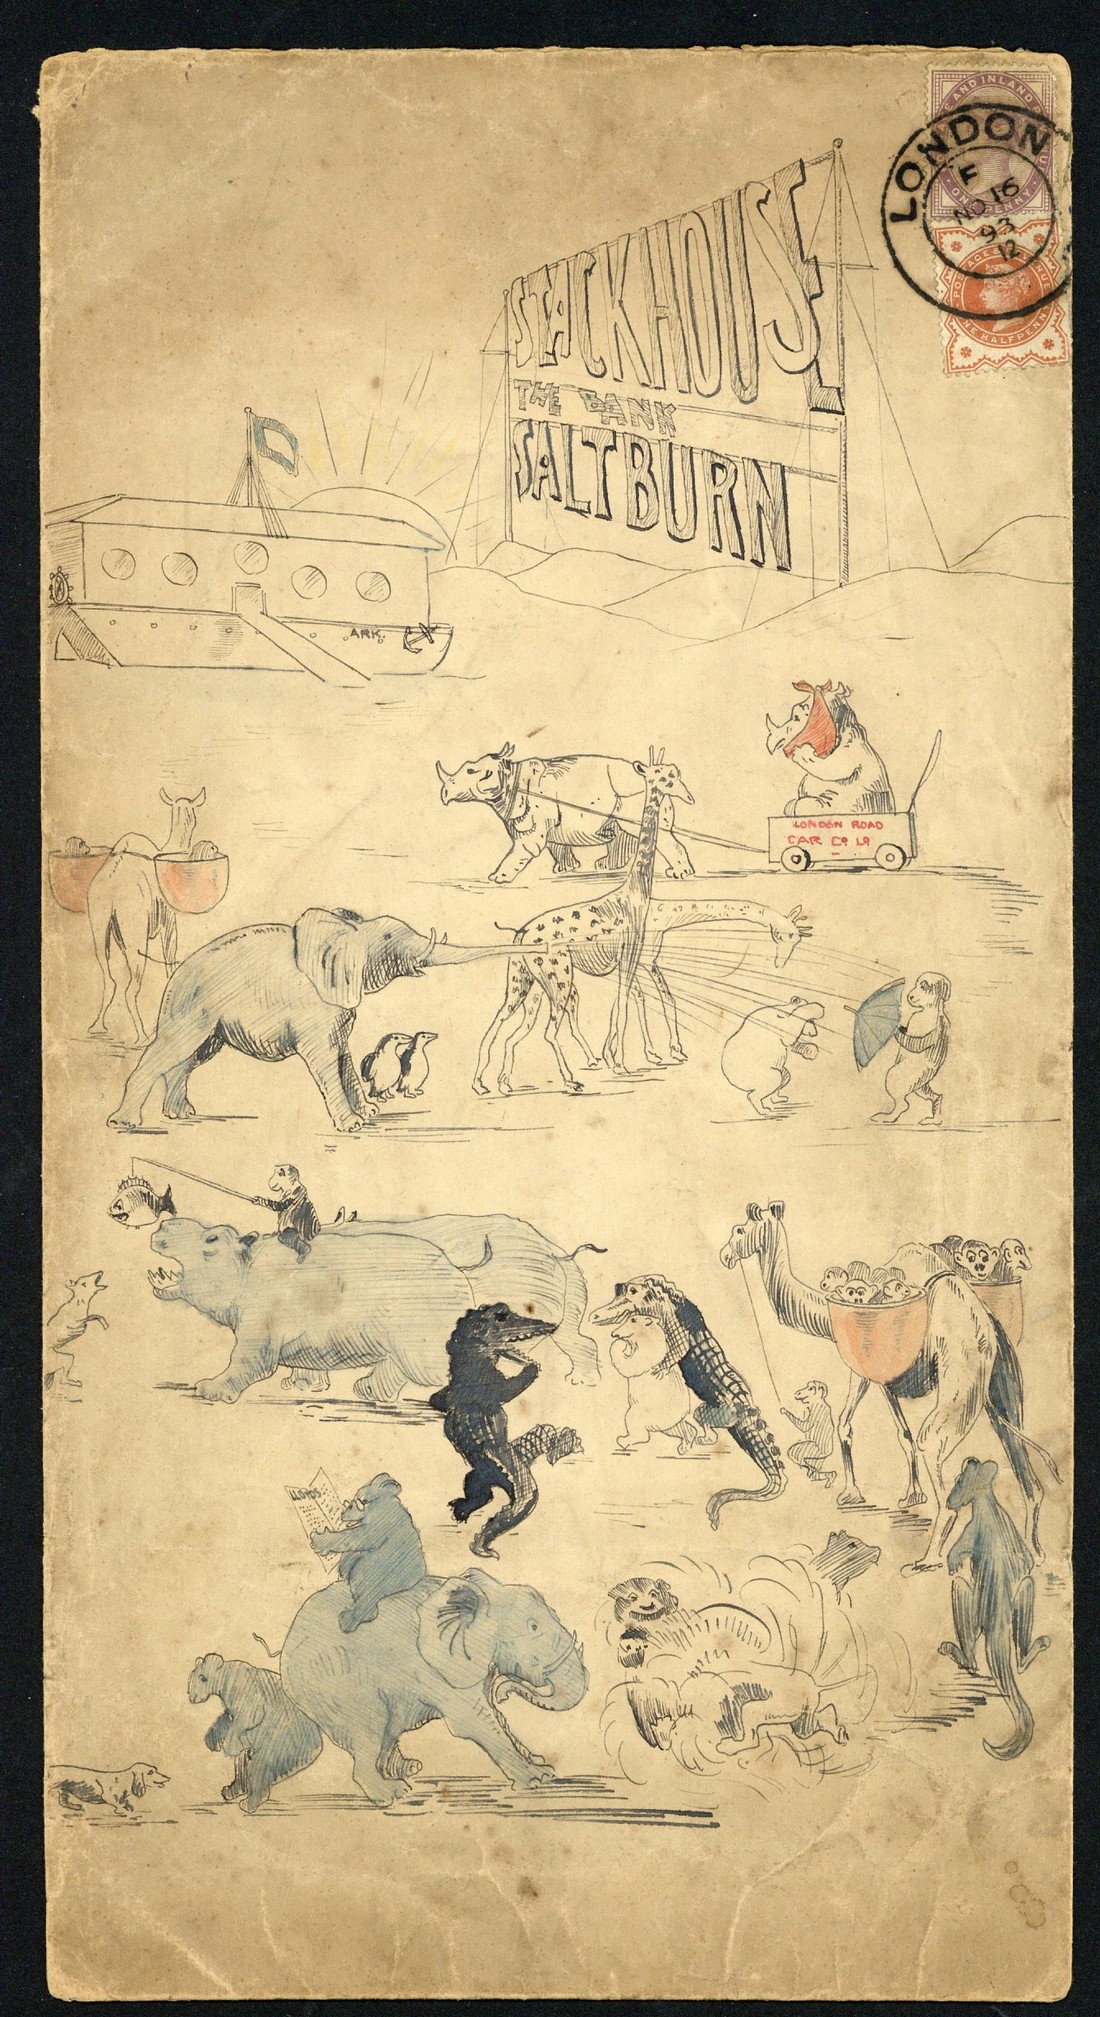 STACKHOUSE
THE BANK
SALTBURN
LONDON
F
NO 16
93
12
E AND INLAND R
ONE PENNY
POSTAGE REVENUE
ONE HALFPENNY
ARK
LONDON ROAD
CAR CO LD
LLOYDS